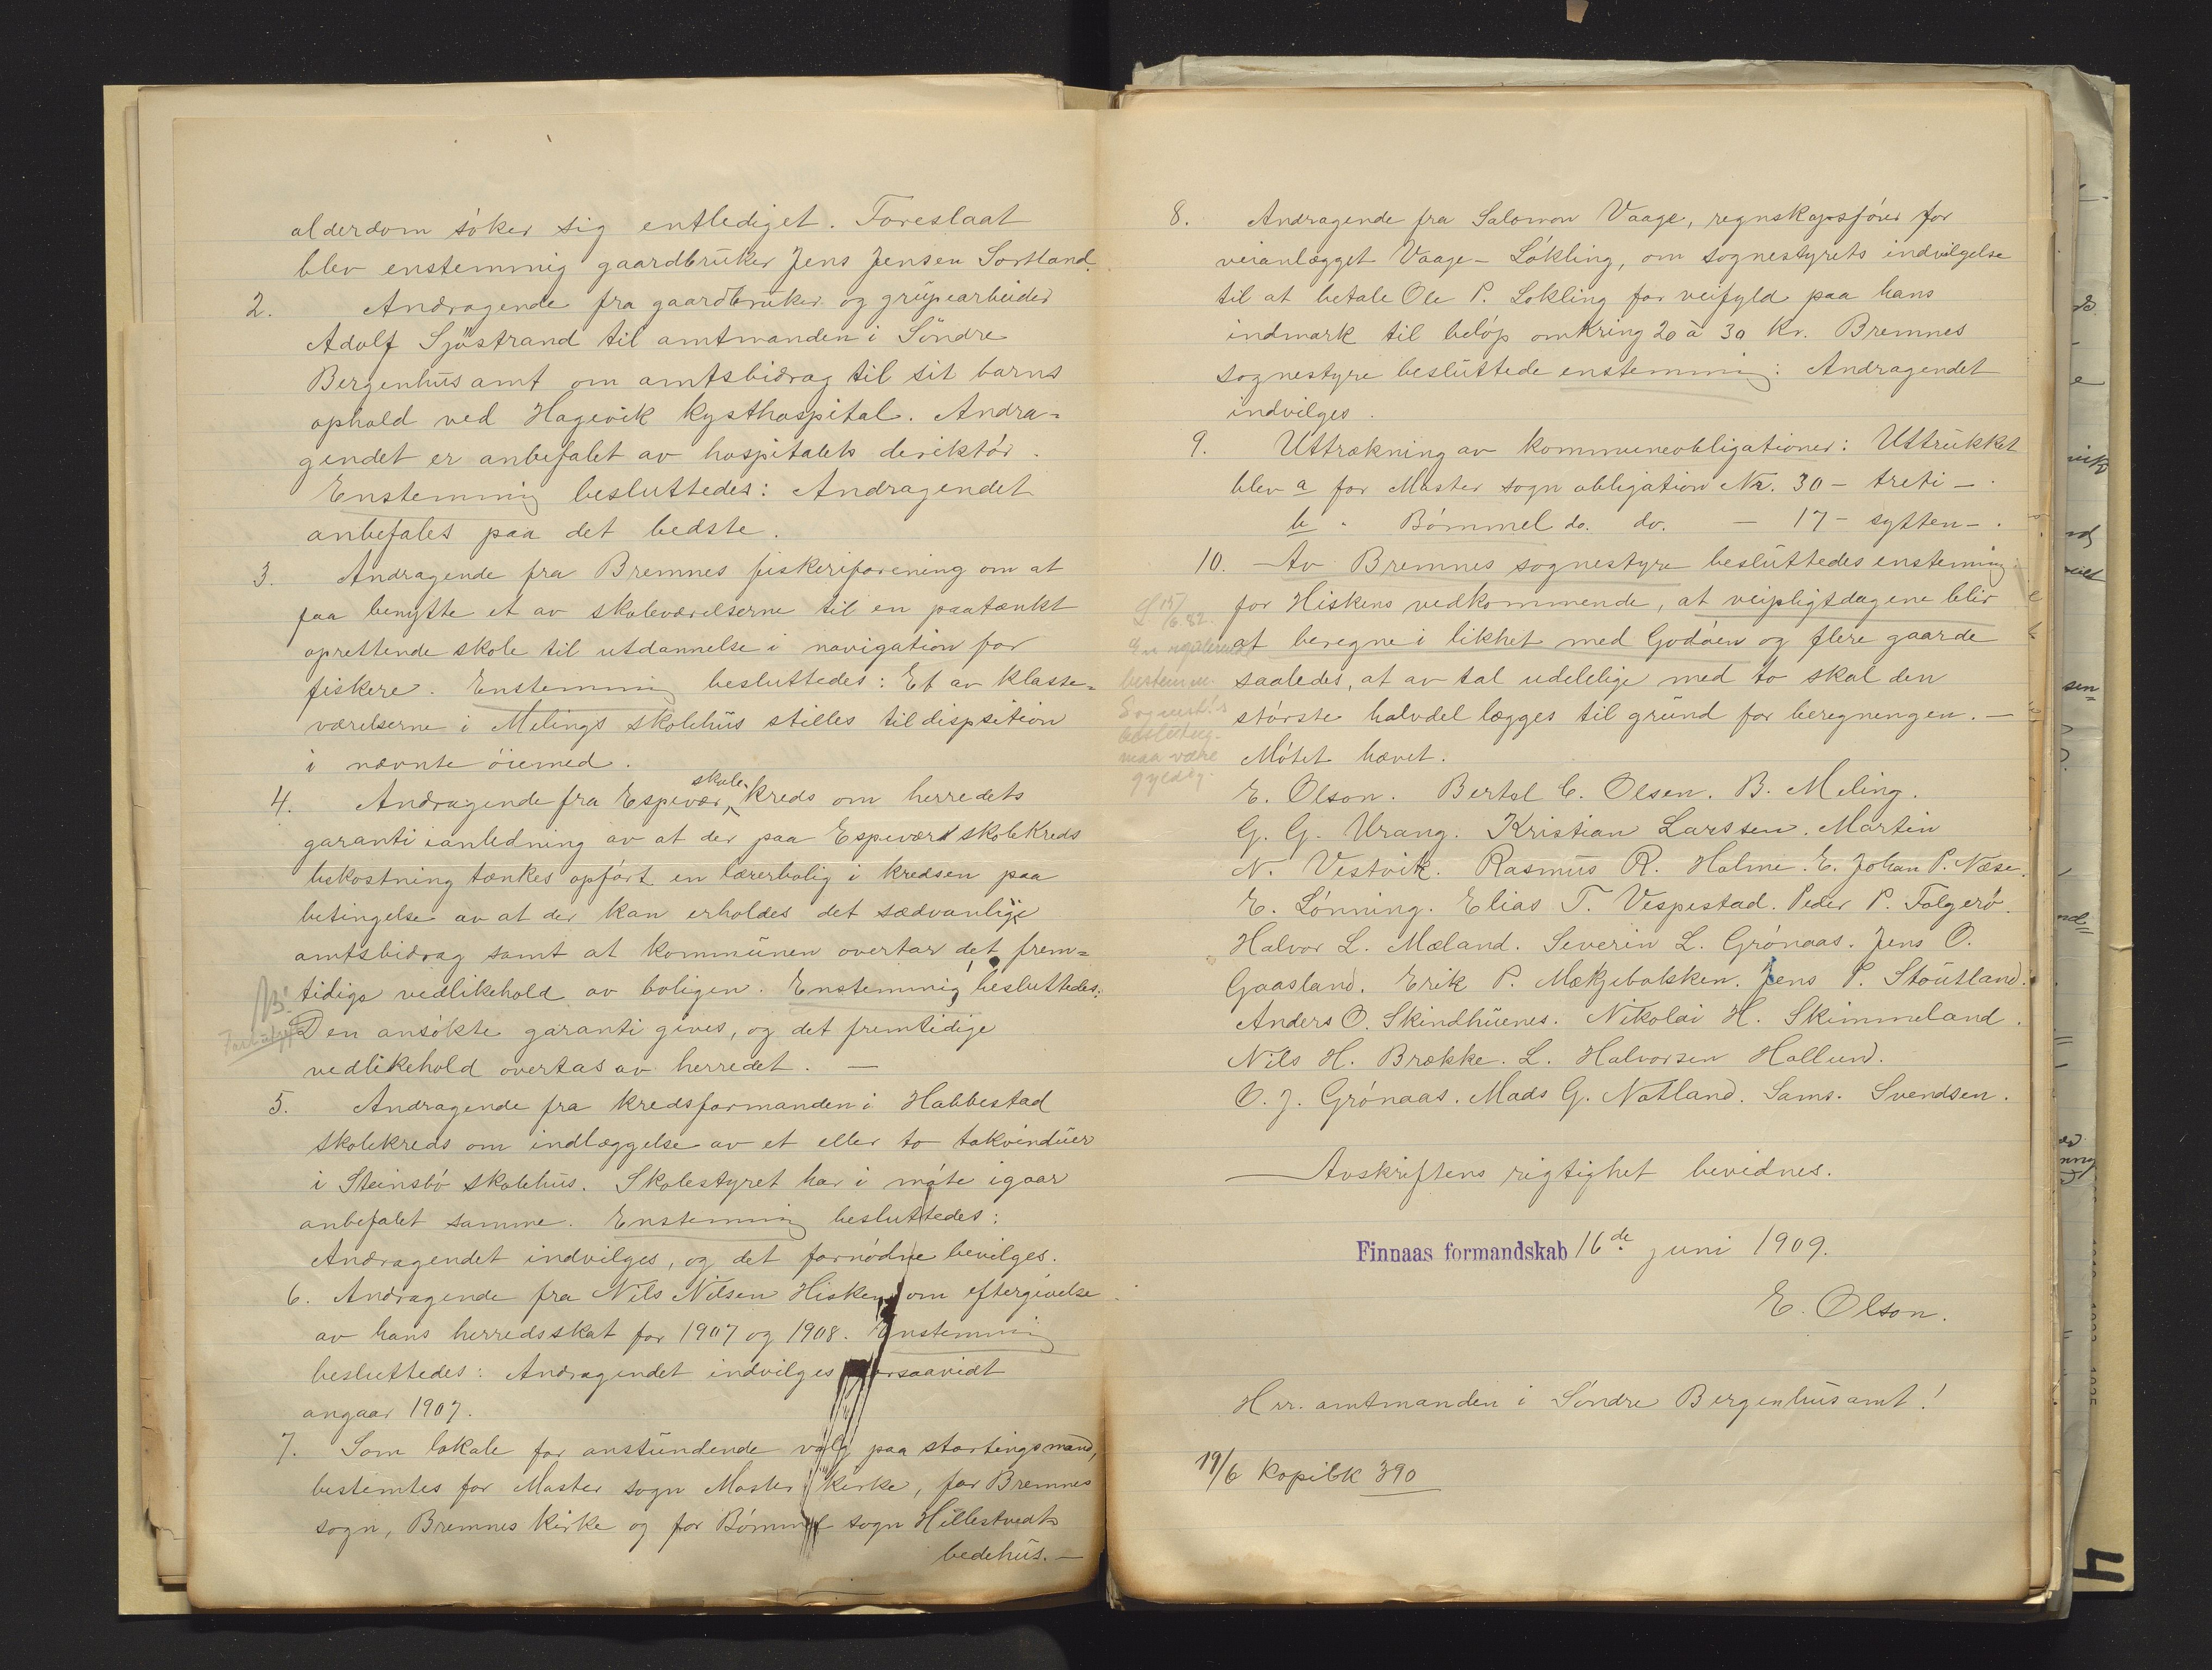 alderdom söker sig entlediget. Foreslaat
blev enstemmig gaardbruker Jens Jensen Sortland.
2. Andragende fra gaardbruker og grupearbeider
Adolf Sjöstrand til amtmanden i Söndre
Bergenhus amt om amtsbidrag til sit barns
ophold ved Hagevik Kysthospital. Andra-
gendet er anbefalet av hospitalets direktör.
Enstemmig besluttedes: Andragendet
anbefales paa det bedste.
3. Andragende fra Bremnes fiskeriforening om at
faa benytte et av skoleværelserne til en paatænkt
oprettende skole til utdannelse i navigation for
fiskere. Enstemmig besluttedes: Et av klasse-
værelserne i Melings skolehus stilles til dispsition
i nævnte öiemed.
4. Andragende fra Espevær skole-kreds om herredets
garanti ianledning av at der paa Espevær skolekreds
bekostning tænkes opfört en lærerbolig i kredsen paa
betingelse av at der kan erholdes det sædvanlige
amtsbidrag samt at kommunen overtar det frem-
tidige vedlikehold av boligen. Enstemmig besluttedes:
NB! Den ansökte garanti gives, og det fremtidige
vedlikehold overtas av herredet. —
5. Andragende fra kredsformanden i Habbestad
skolekreds om indlæggelse av et eller to takvinduer
i Steinsbö skolehus. Skolestyret har i möte igaar
anbefalet samme. Enstemmig besluttedes:
Andragendet indvilges, og det fornödne bevilges.
6. Andragende fra Nils Nilsen Hisken om eftergivelse
av hans herredsskat for 1907 og 1908. Enstemmig
besluttedes: Andragendet indvilges forsaavidt
angaar 1907.
7. Som lokale for anstundende valg paa stortingsmand,
bestemtes for Moster sogn Moster kirke, for Bremnes
sogn, Bremnes kirke og for Bömmel sogn Hillestvedt
bedehus. —
8. Andragende fra Salomon Vaage, regnskapsförer for
veianlægget Vaage - Lökling, om sognestyrets indvilgelse
til at betale Ole P. Lökling for veifyld paa hans
indmark til belöp omkring 20 à 30 Kr. Bremnes
sognestyre besluttede enstemmig: Andragendet
indvilges.
9. Uttrækning av kommuneobligationer: Uttrukket
blev a for Moster sogn obligation Nr. 30 - treti -.
b " Bömmel do. do. — 17 - sytten -.
10. Av Bremnes sognestyre besluttedes enstemmig
for Hiskens vedkommende, at veipligtdagene blir
at beregne i likhet med Godöen og flere gaarde
saaledes, at av tal udelelige med to skal den
störste halvdel lægges til grund for beregningen. —
bestemm.
maa være
gyldig.
Mötet hævet.
E. Olson. Bertel C. Olsen. B. Meling.
G. G. Urang. Kristian Larssen. Martin
N. Vestvik. Rasmus R. Holme. E. Johan P. Næse.
E. Lönning. Elias T. Vespestad. Peder P. Folgerö.
Halvor L. Mæland. Severin L. Grönaas. Jens O.
Gaasland. Erik P. Mækjebakken. Jens P. Stoutland.
Anders O. Skindhuenes. Nikolai H. Skimmeland.
Nils H. Brække. L. Halvorsen Hallund.
O. J. Grönaas. Mads G. Natland. Sams. Svendsen.
Avskriftens rigtighet bevidnes.
Finnaas formandskab 16de juni 1909.
E. Olson.
Hrr. amtmanden i Söndre Bergenhus amt!
19/6 Kopibk 390